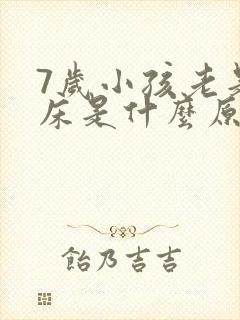 7歲小孩老是
床是什麼原
飴乃吉吉